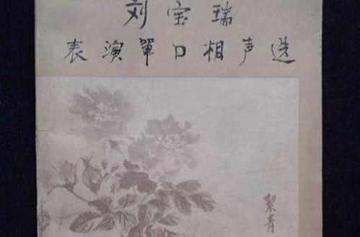 刘宝瑞
表演單口相声选